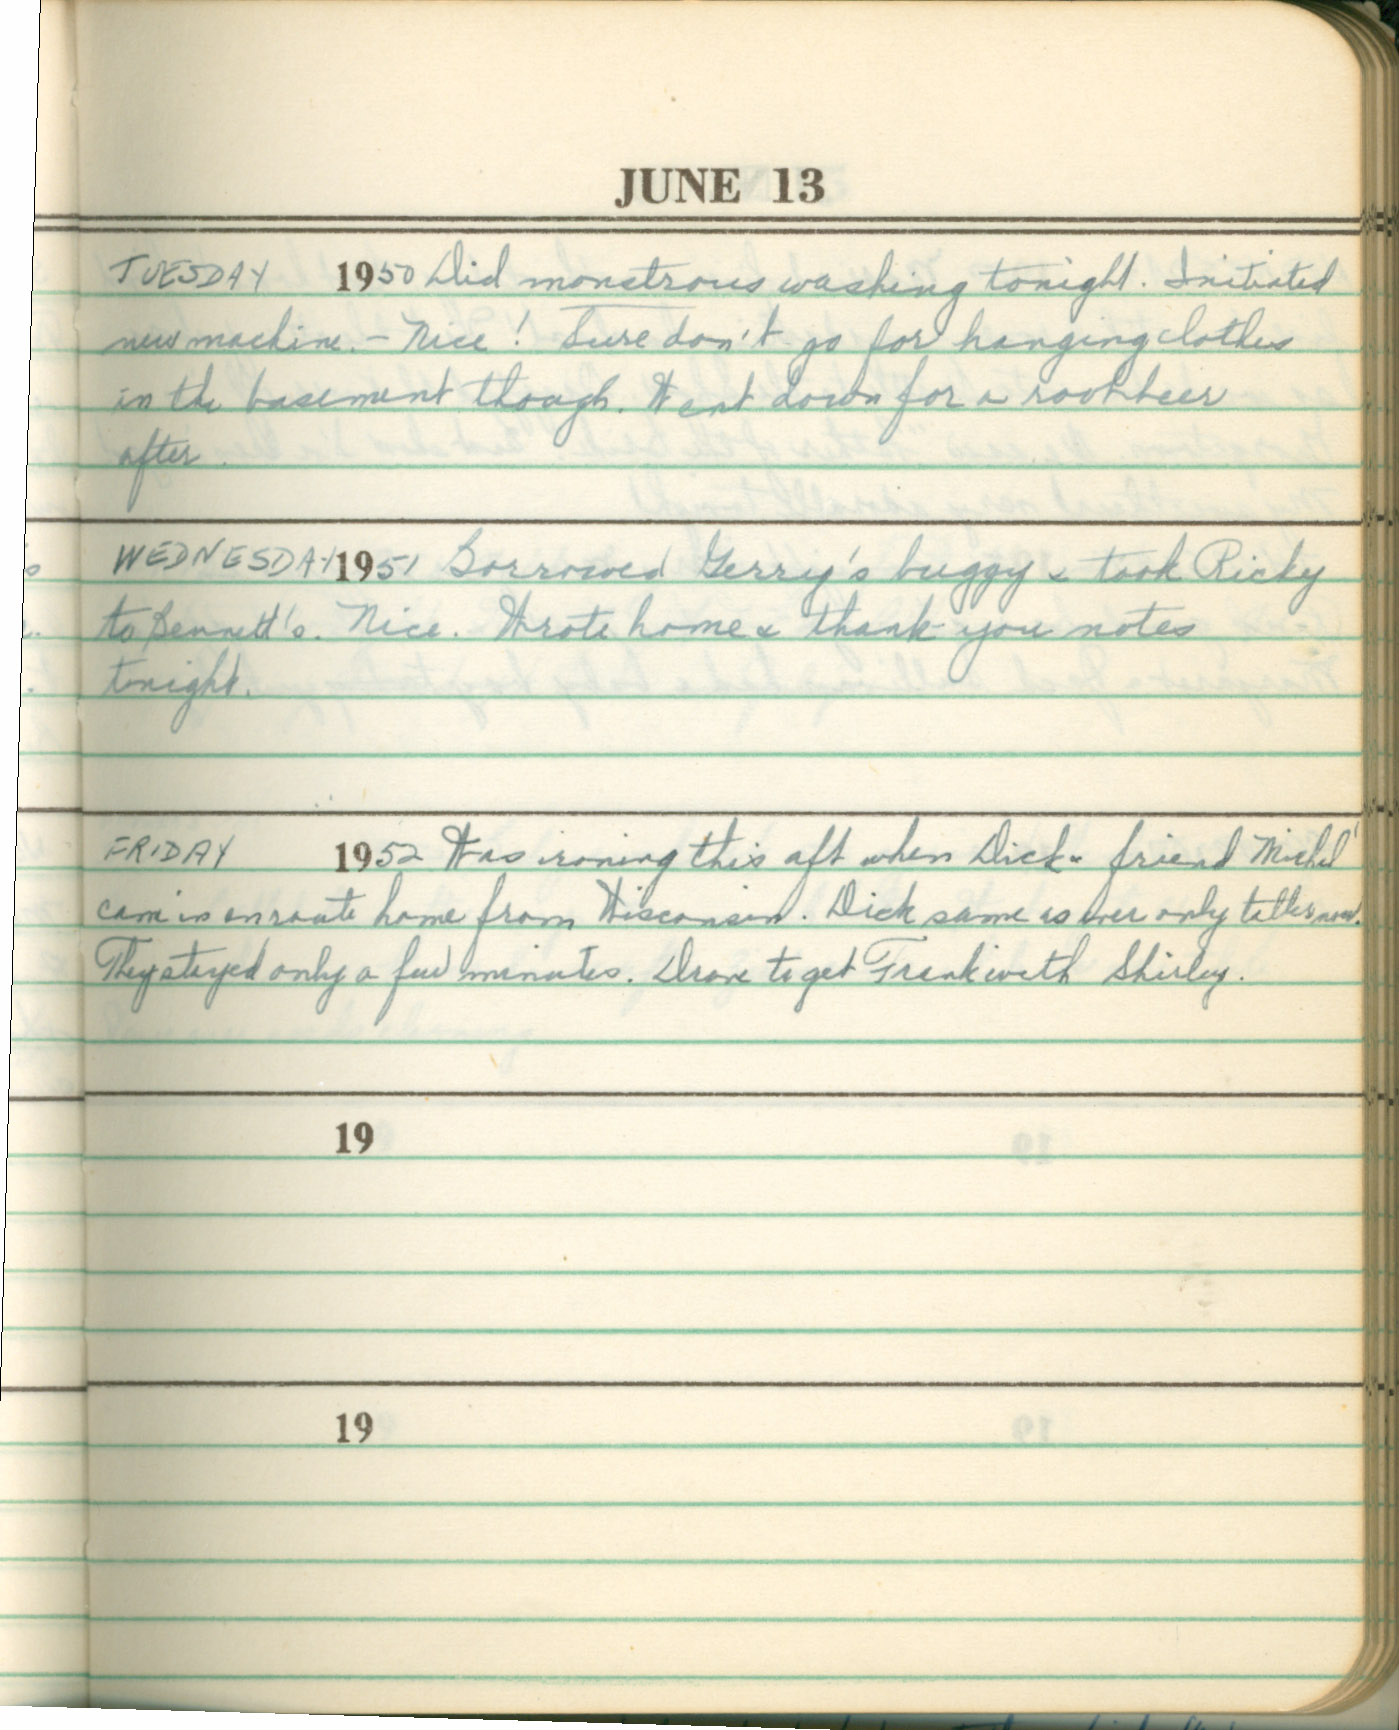 JUNE 13
TUESDAY 1950 Did monstrous washing tonight. Initiated
new machine. - Nice! Sure don't go for hanging clothes
in the basement though. Went down for a rootbeer
after.
WEDNESDAY 1951 Borrowed Gerry's buggy & took Ricky
to Bennett's. Nice. Wrote home & thank-you notes
tonight.
FRIDAY 1952 Was ironing this aft when Dick & friend Michel
came in enroute home from Wisconsin. Dick same as ever only taller now.
They stayed only a few minutes. Drove to get Frank with Shirley.
19
19